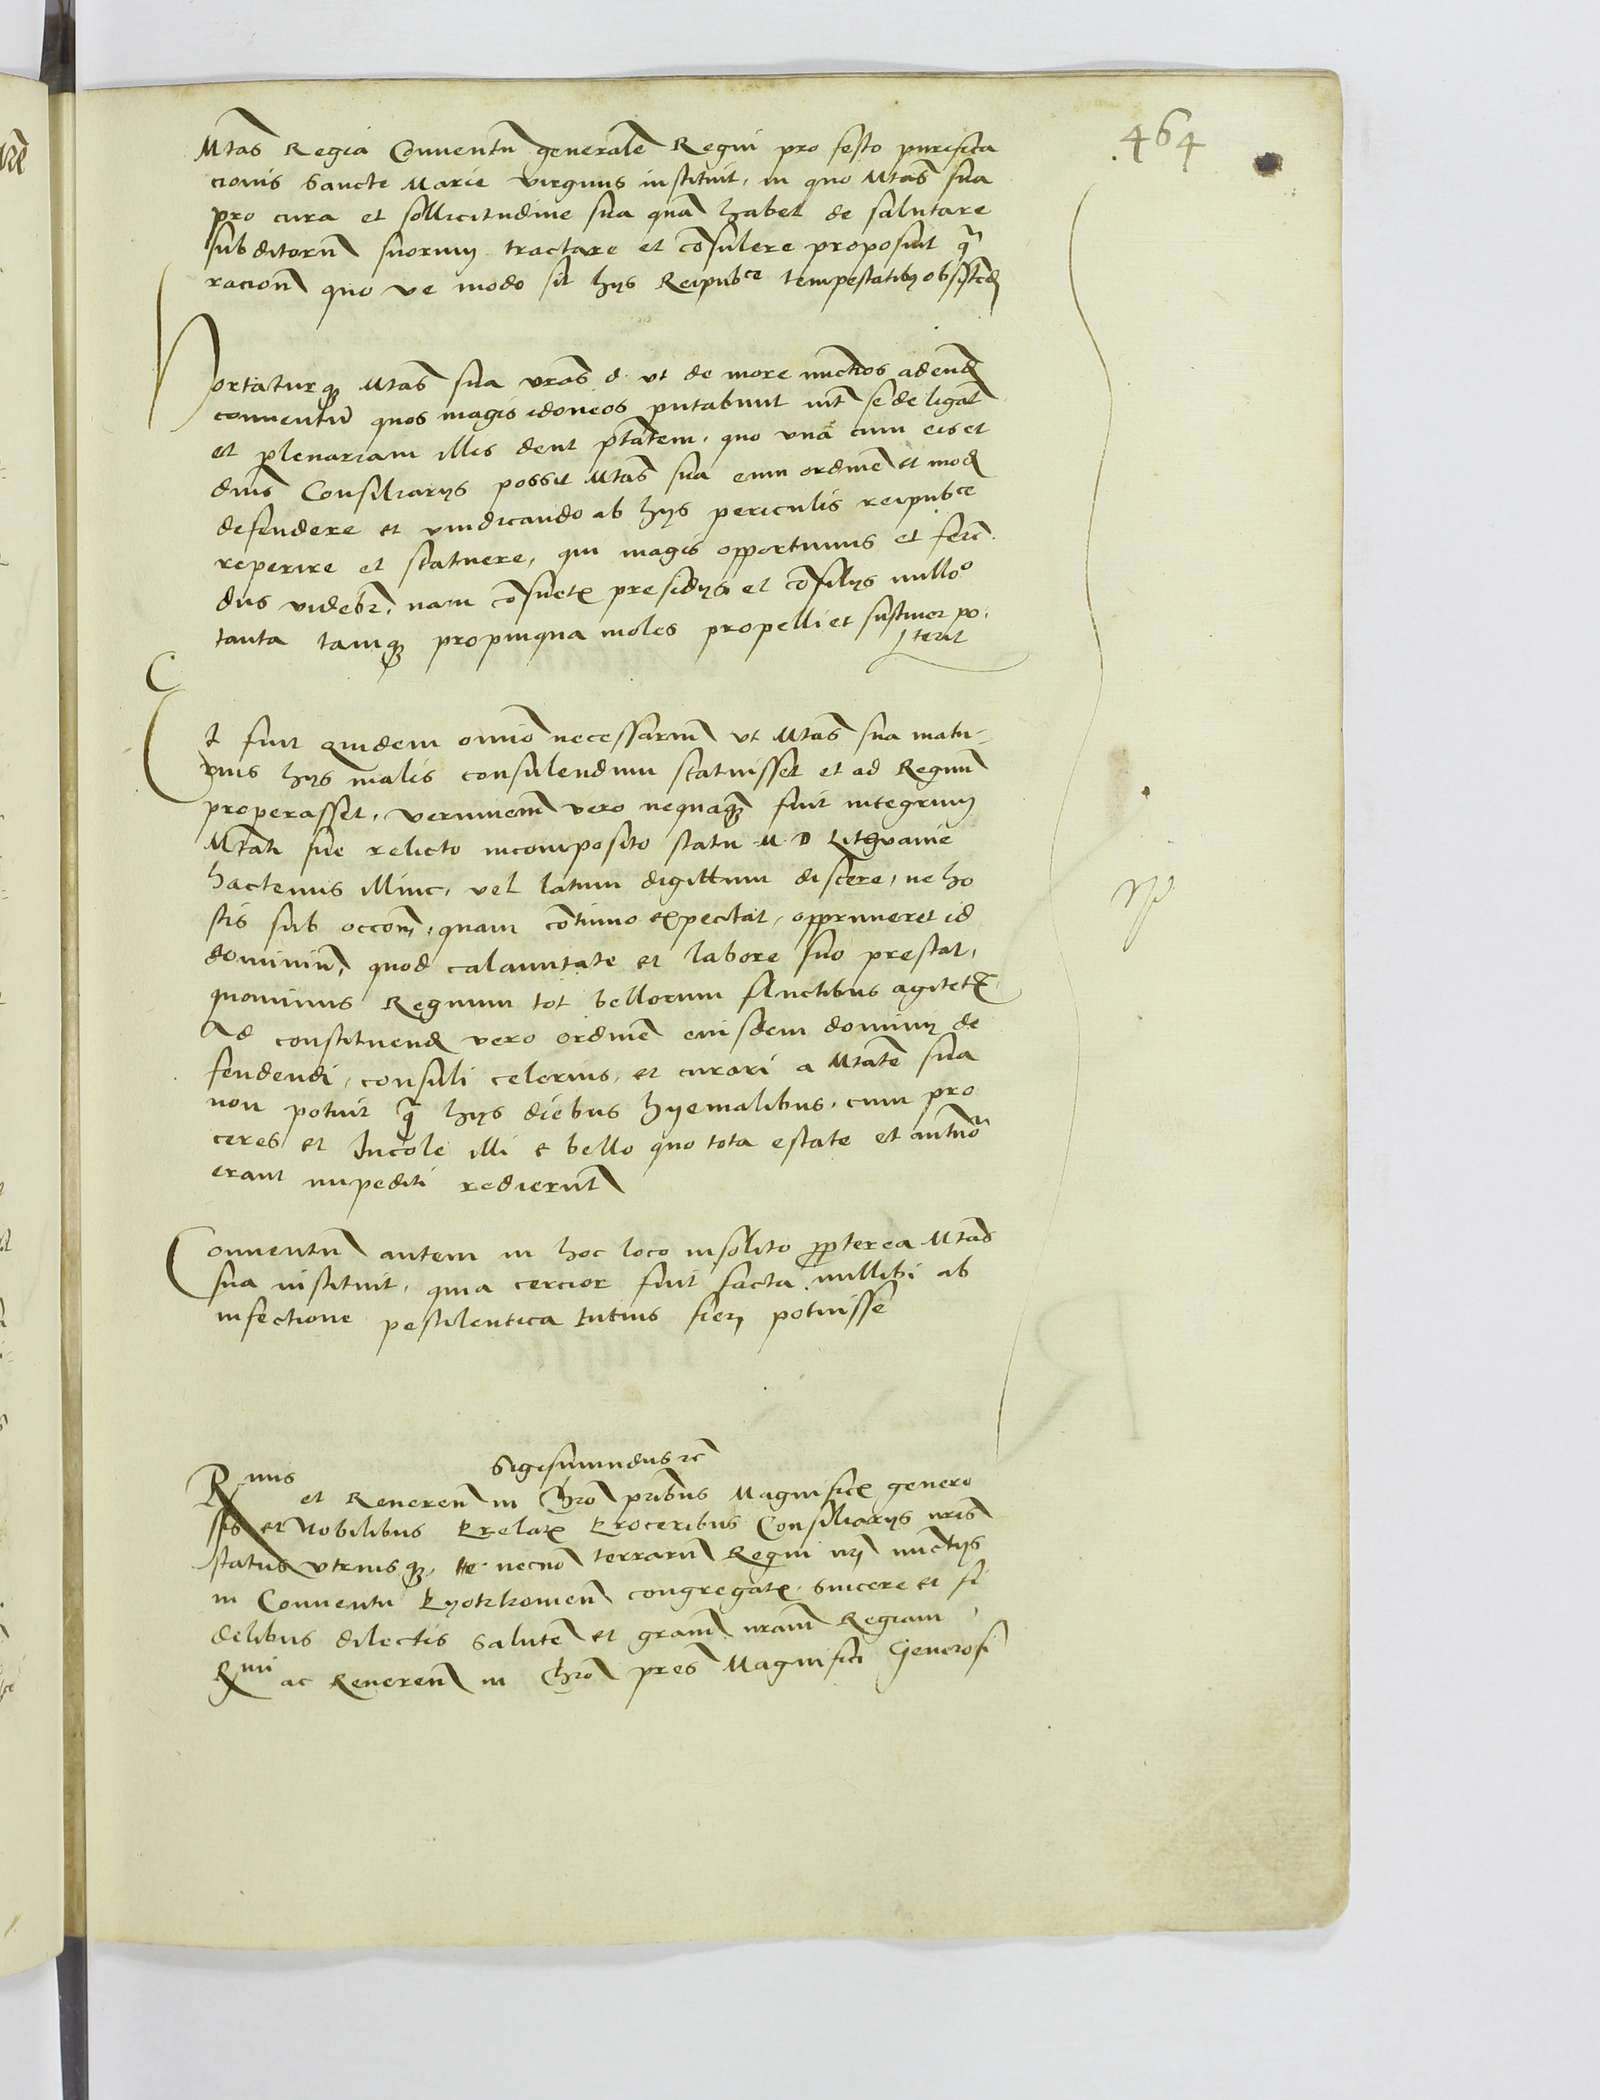 464
Mtas Regia Conventũ generalẽ Regni pro festo purifica
cionis Sancte Marie virginis instituit, in quo Mtas sua
pro cura et sollicitudine sua quã habet de salutare
subditorũ suorum tractare et cõsulere proposuit qͣ
racionẽ quo ve modo sit hijs Reipubce tempestatibȝ obsistẽd
Hortaturqȝ Mtas sua vras d. ut de more nunctios adeund
conventũ quos magis idoneos putabunt int se deligãt
et plenariam illis dent ptatem, quo una cum eis et
dnis Consiliarijs possit Mtas sua eum ordinẽ et mod
defendere et vindicando ab hijs periculis reipubce
reperire et statuere, qui magis opportunus et
dus videbr, nam cõsuetꝭ presidijs et cõsilijs nullo°
tanta tamqȝ propinqua moles propelli et sustiner po,
terit
Et fuit quidem omnio necessariũ ut Mtas sua matu-
rius hijs malis consulendum statuisset et ad Regnũ
properasset, verumem vero nequaqȝ fuit integrum
Mtati sue relicto incomposito statu M D Lithvanie
hactenus illinc, vel latum digittum discere, ne ho
stis sub occone, quam cõtinuo expectat, opprimeret id
dominiũ, quod calamitate et labore suo prestat,
quominus Regnum tot bellorum fluctibus agitetꝭ
Ad constituend vero ordinẽ eiusdem dominij de
fendendi, consuli celerius, et curari a Mtate sua
non potuit qͣ hijs diebus hyemalibus, cum pro
ceres et Incole illi e bello quo tota estate et autũo
erant impediti redierunt
Conventũ autem in hoc loco insolito ppterea Mtas
sua instituit, quia cercior fuit facta nullibi ab
infectione pestilentica tutius fierj potuisse
Sigismundus rc
Rmis et Reverenꝭ in Chro pribus Magnificꝭ genero
sis et Nobilibus Prelatꝭ Proceribus Consiliarijs nris
status utriusqȝ, necnõ terrarũ Regni nri nunctijs
in Conventu Pyotrkovienꝭ congregatꝭ, sincere et fi
delibus dilectis Salutẽ et gram nram Regiam
Rmi ac Reverenꝭ in Chro pres Magnifici Generosi